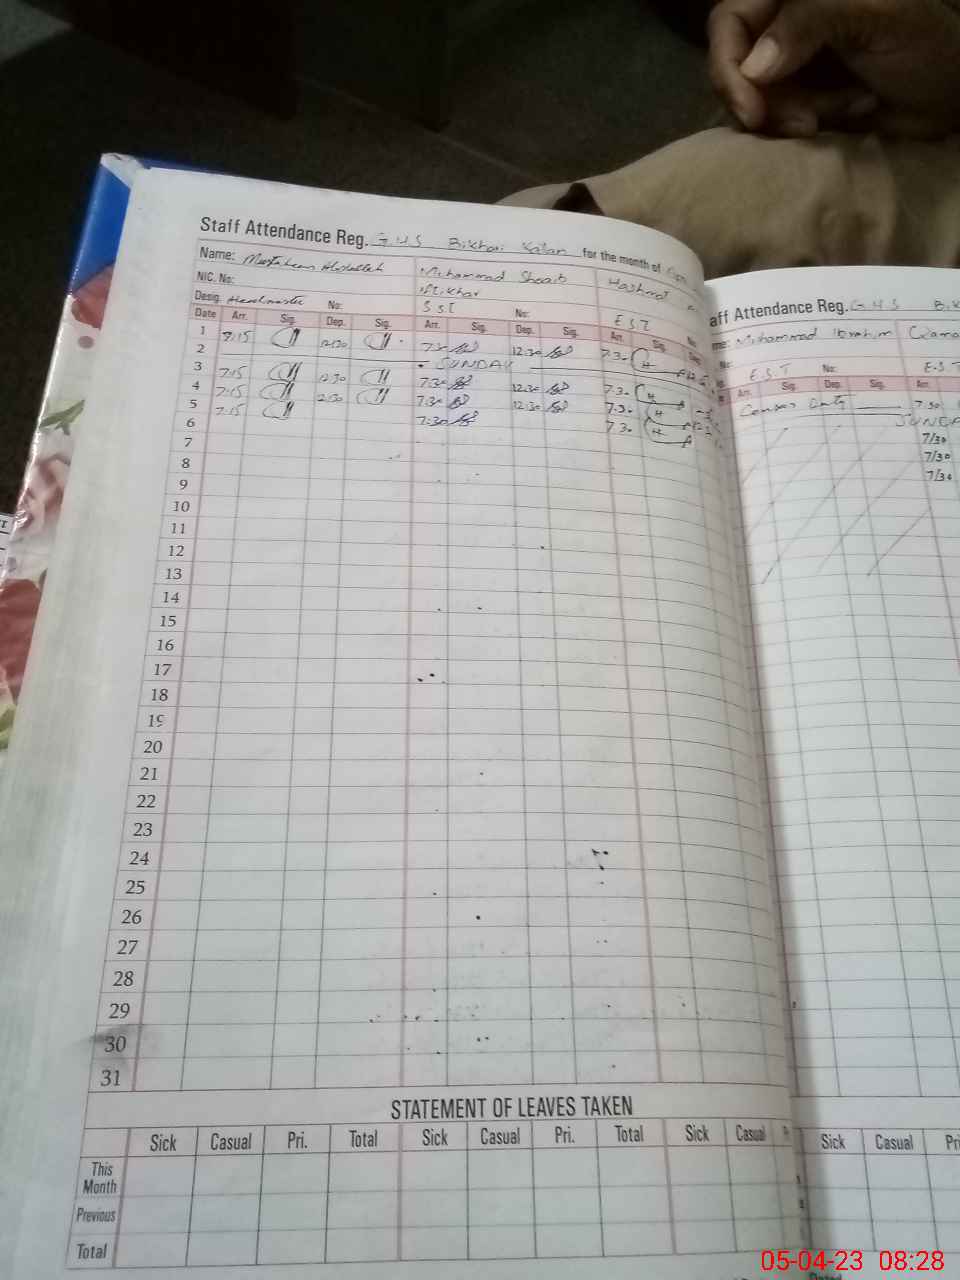 Staff Attendance Reg. G.H.S Bikhari Kalan for the month of
Name: Muhammad Shoaib Hashmat
NIC. No: Iftikhar
Desig. Headmaster No: S S T No: E S T No
Date Arr. Sig. Dep. Sig. Arr. Sig. Dep. Sig. Arr. Sig. Dep
1 12:30 7:30 12:30 7.30
2 SUNDAY
3 7:15 12:30 7:30 12:30 7.30
4 7:15 12:30 7:30 12:30 7.30
5 7:15 7:30 7.30
6
7
8
9
10
11
12
13
14
15
16
17
18
19
20
21
22
23
24
25
26
27
28
29
30
31
STATEMENT OF LEAVES TAKEN
Sick Casual Pri. Total Sick Casual Pri. Total Sick Casual
This Month
Previous
Total
aff Attendance Reg. G H S
me: Muhammad Ibrahim
No: E.S.T No: E.S.T
Arr. Sig. Dep. Sig. Arr.
Census Duty 7:30
SUNDA
7/30
7/30
7/30
Sick Casual Pri
05-04-23 08:28